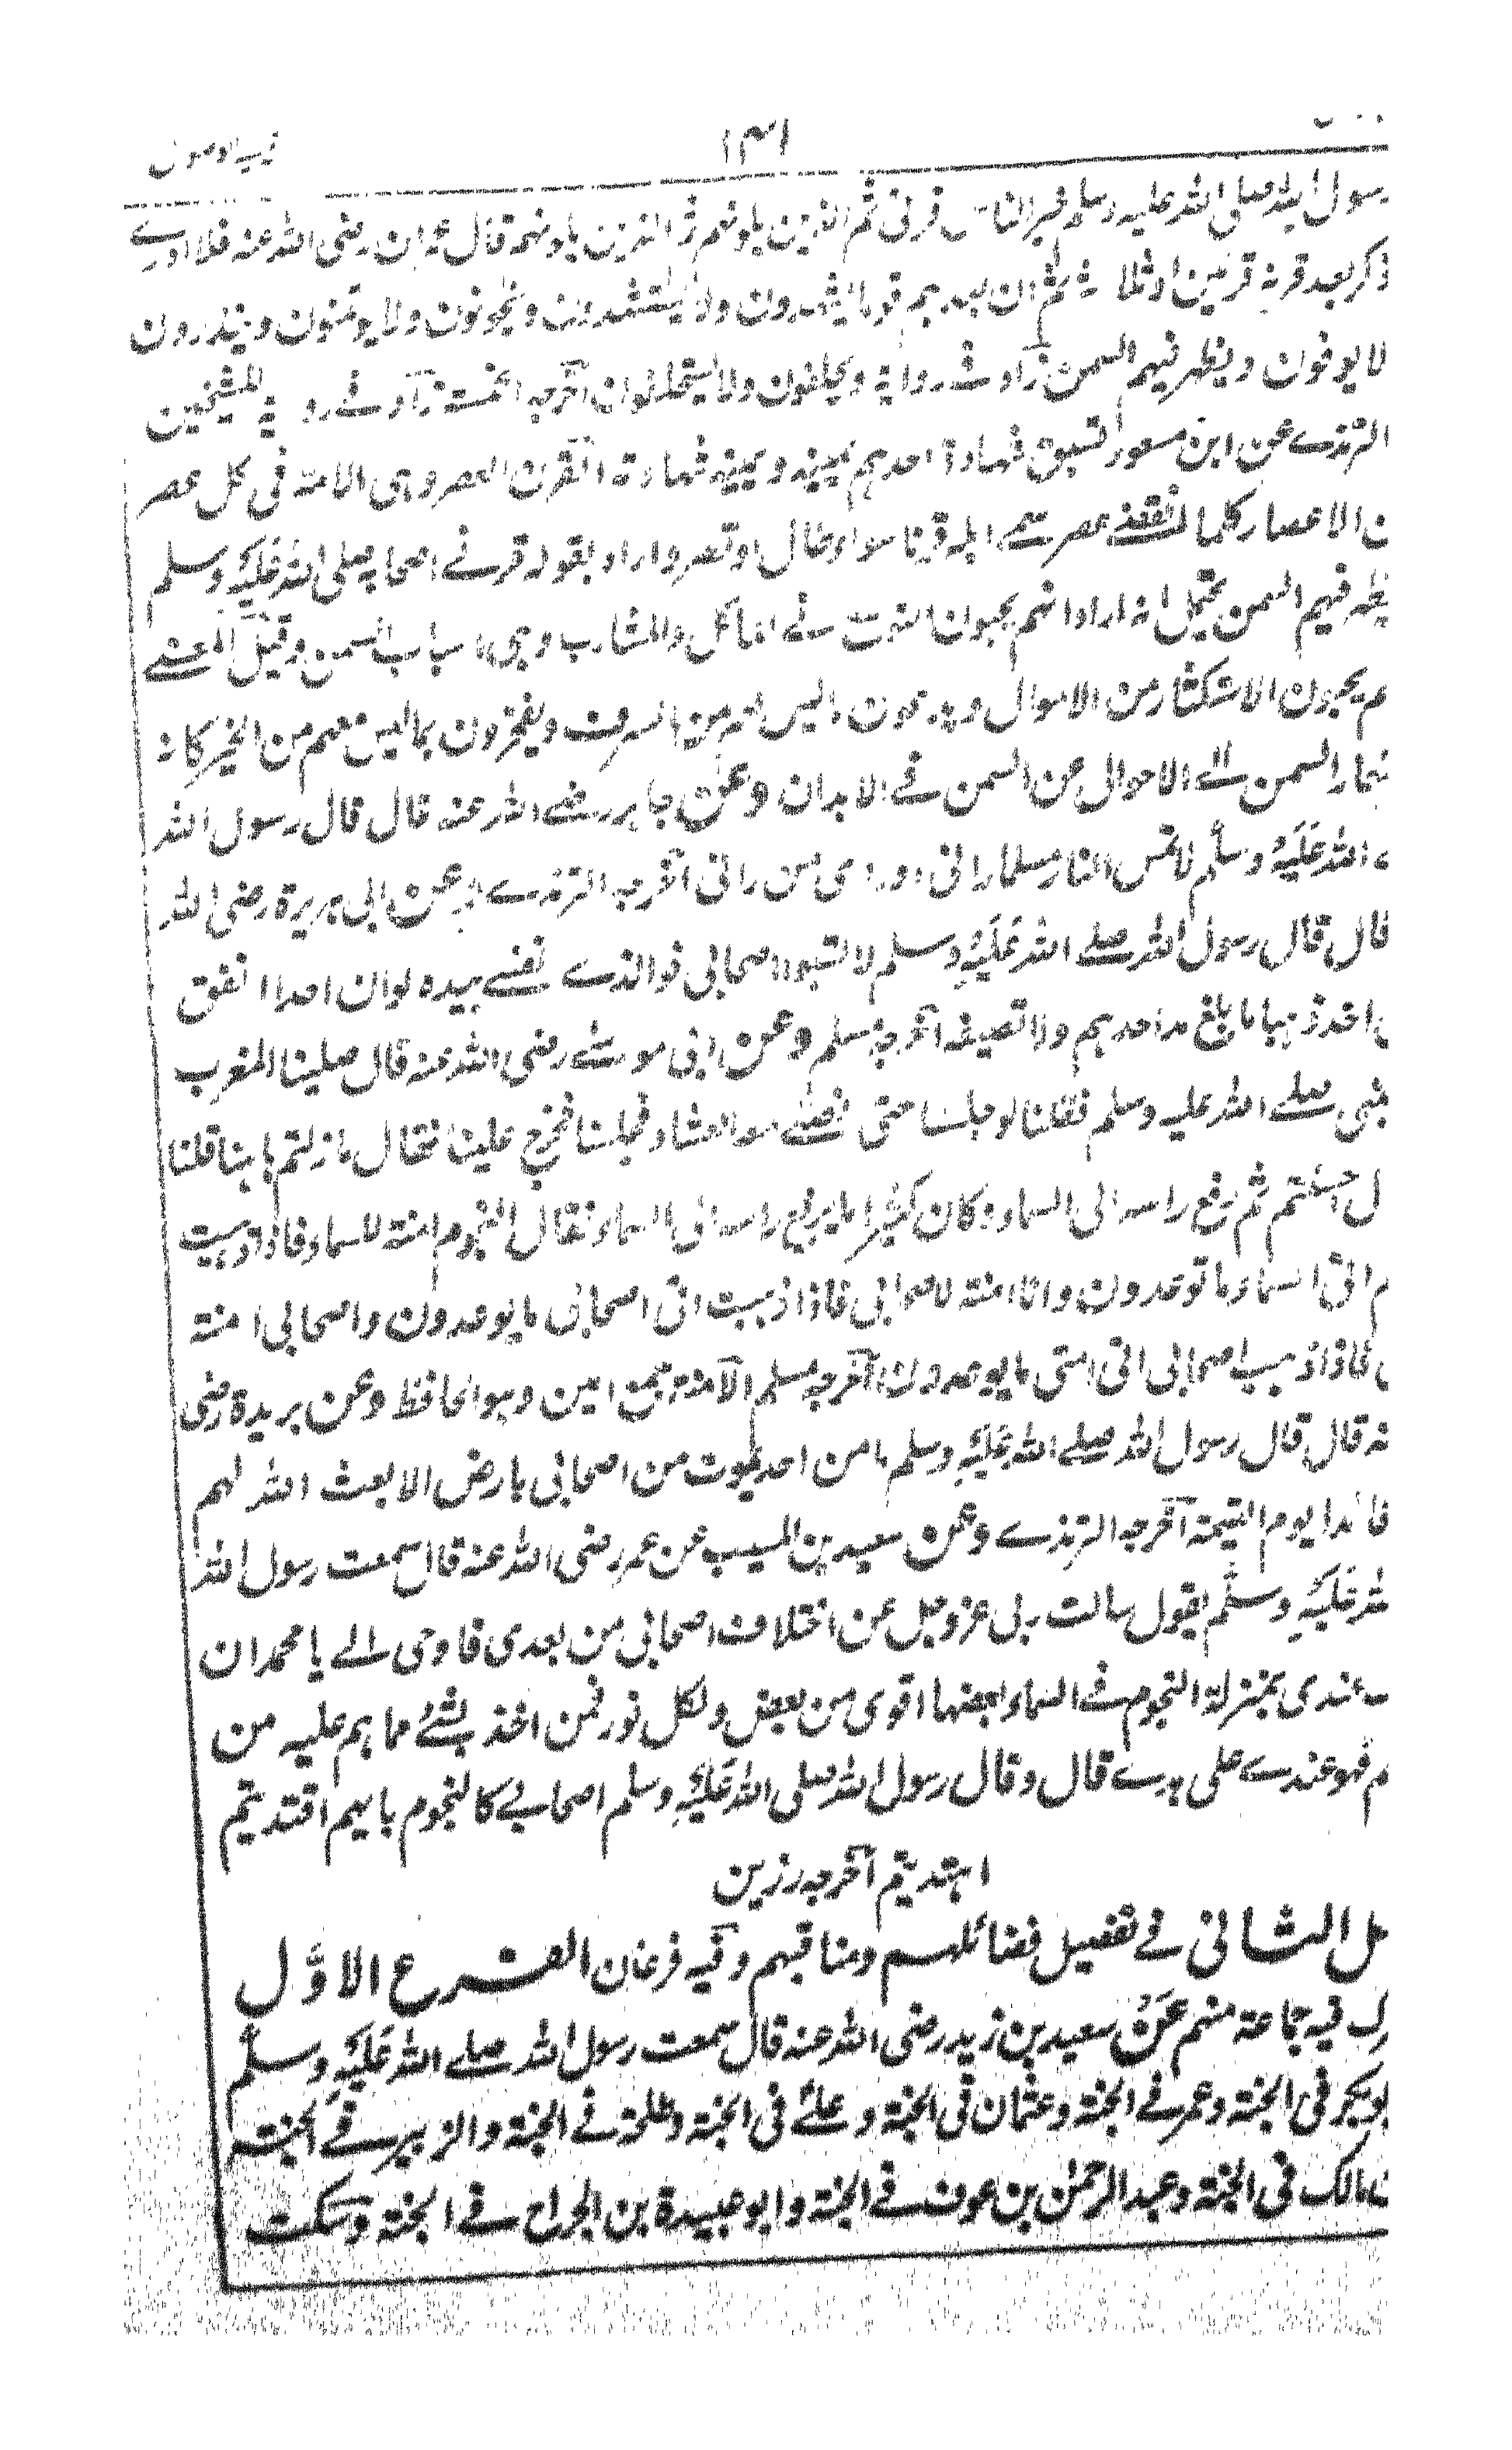 ١٣١
رسول الله صلى الله عليه وسلم خير الناس قرنى ثم الذين يلونهم ثم الذين يلونهم قال عمران رضى الله عنه فلا ادرى
ذكر بعد قرنه قرنين او ثلاثة ثم ان بعدهم قوما يشهدون ولا يستشهدون ويخونون ولا يوتمنون وينذرون
لا يوفون ويظهر فيهم السمن زاد فى رواية ويحلفون ولا يستحلفون اخرجه الخمسة وزاد فى رواية للشيخين
الترمذى عن ابن مسعود تسبق شهادة احدهم يمينه ويمينه شهادته القرن العصر وهى الامة فى كل عصر
ن الاعصار كلما انقضى عصر سمى اهله قرنا سواء طال او قصر واراد بقوله قرنى اصحابه صلى الله عليه وسلم
يظهر فيهم السمن يحتمل انه اراد انهم يحبون التوسع فى المآكل والمشارب وهى اسباب السمن وقيل المعنى
م يحبون الاستكثار من الاموال ويدعون ما ليس لهم من الشرف ويفخرون بما ليس معهم من الخير كانه
السمن فى الاحوال عن السمن فى الابدان وعن جابر رضى الله عنه قال قال رسول الله
الله عليه وسلم لا تمس النار مسلما رانى او راى من رانى اخرجه الترمذى وعن ابى هريرة رضى الله
قال قال رسول الله صلى الله عليه وسلم لا تسبوا اصحابى فو الذى نفسى بيده لو ان احدا انفق
احد ذهبا ما بلغ مد احدهم ولا نصيفه اخرجه مسلم وعن ابى موسى رضى الله عنه قال صلينا المغرب
نبى صلى الله عليه وسلم فقلنا لو جلسنا حتى نصلى معه العشاء فجلسنا فخرج علينا فقال ما زلتم هاهنا قلنا
ل احسنتم ثم رفع راسه الى السماء وكان كثيرا ما يرفع راسه الى السماء فقال النجوم امنة للسماء فاذا ذهبت
م اتى السماء ما توعدون وانا امنة لاصحابى فاذا ذهبت اتى اصحابى ما يوعدون واصحابى امنة
فاذا ذهب اصحابى اتى امتى ما يوعدون اخرجه مسلم الامنة جمع امين وهو الحافظ وعن بريدة رضى
نه قال قال رسول الله صلى الله عليه وسلم ما من احد يموت من اصحابى بارض الا بعث الله لهم
قائدا يوم القيمة اخرجه الترمذى وعن سعيد بن المسيب عن عمر رضى الله عنه قال سمعت رسول الله
لله عليه وسلم يقول سالت ربى عز وجل عن اختلاف اصحابى من بعدى فاوحى الى يا محمد ان
عندى بمنزلة النجوم فى السماء بعضها اقوى من بعض ولكل نور فمن اخذ بشئ مما هم عليه من
م فهو عندى على هدى قال وقال رسول الله صلى الله عليه وسلم اصحابى كالنجوم بايهم اقتديتم
اهتديتم اخرجه رزين
ل الثانى فى تفصيل فضائلهم ومناقبهم وفيه فرعان الفرع الاوّل
فيه جماعة منهم عن سعيد بن زيد رضى الله عنه قال سمعت رسول الله صلى الله عليه وسلم
بوبكر فى الجنة وعمر فى الجنة وعثمان فى الجنة وعلى فى الجنة وطلحة فى الجنة والزبير فى الجنة
مالك فى الجنة وعبد الرحمن بن عوف فى الجنة وابو عبيدة بن الجراح فى الجنة وسكت